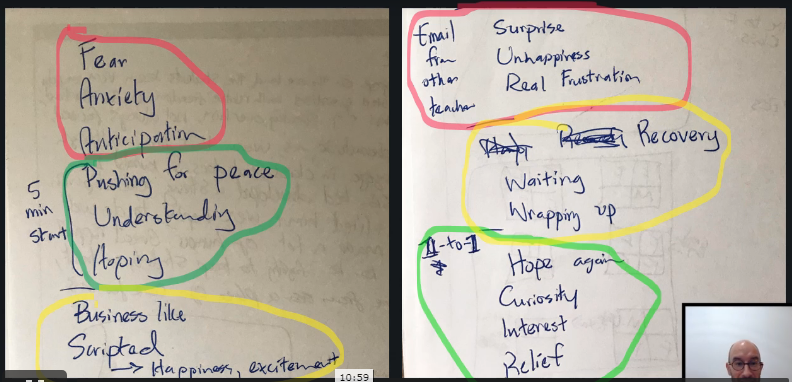 Fear
Anxiety
Anticipation
Pushing for peace
5
min
start
Understanding
Hoping
Business like
Scripted
→ Happiness, excitement
10:59
Email
from
other
teacher
Surprise
Unhappiness
Real Frustration
Recovery
Waiting
Wrapping up
1-to-1
Hope again
Curiosity
Interest
Relief